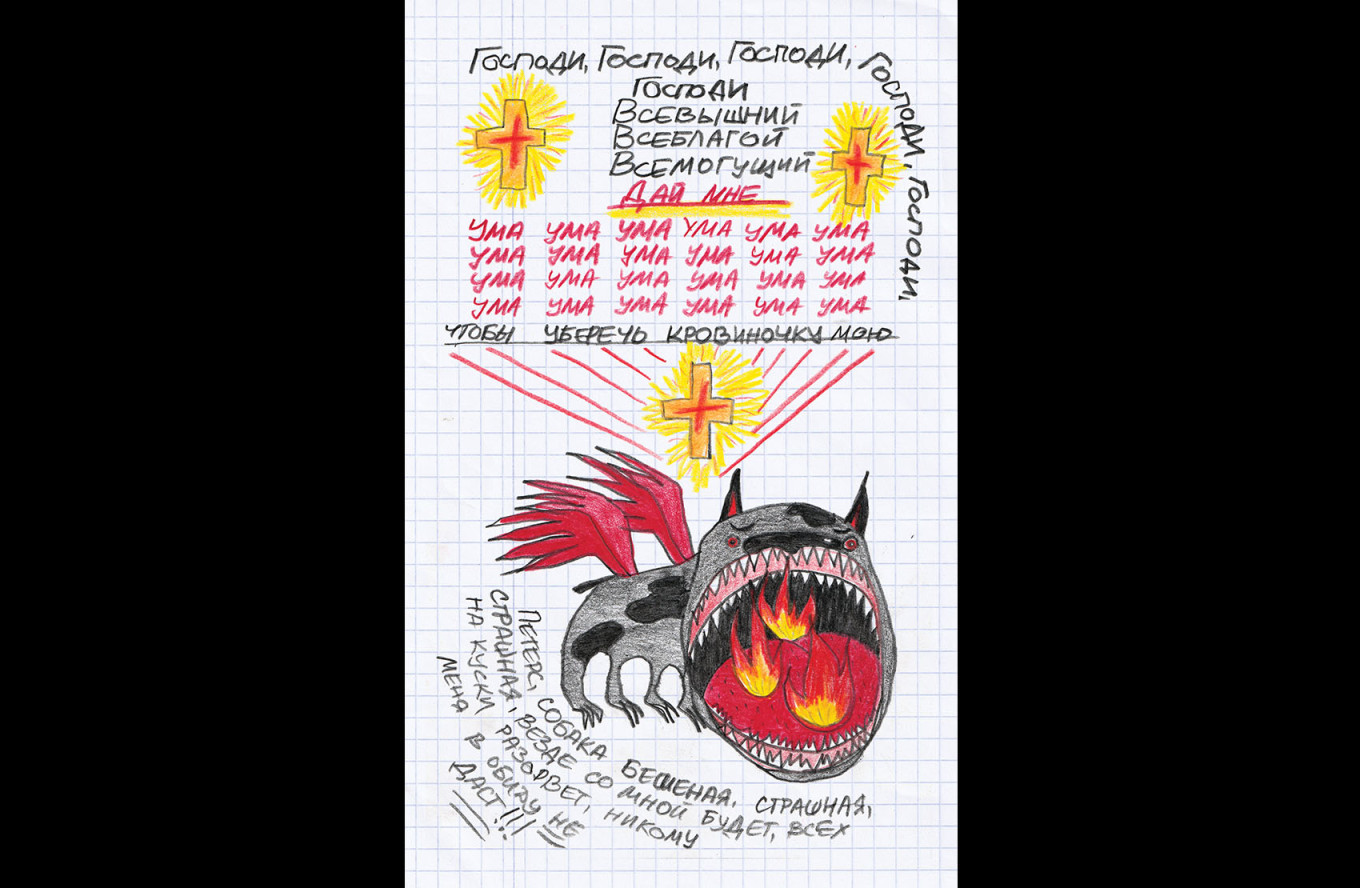 ГОСПОДИ, ГОСПОДИ, ГОСПОДИ, ГОСПОДИ, ГОСПОДИ,
ГОСПОДИ
ВСЕВЫШНИЙ
ВСЕБЛАГОЙ
ВСЕМОГУЩИЙ
ДАЙ МНЕ
УМА УМА УМА УМА УМА УМА
УМА УМА УМА УМА УМА УМА
УМА УМА УМА УМА УМА УМА
УМА УМА УМА УМА УМА УМА
ЧТОБЫ УБЕРЕЧЬ КРОВИНОЧКУ МОЮ
ПЕТЕРС, СОБАКА БЕШЕНАЯ, СТРАШНАЯ,
СТРАШНАЯ, ВЕЗДЕ СО МНОЙ БУДЕТ, ВСЕХ
НА КУСКИ РАЗОРВЕТ, НИКОМУ
МЕНЯ В ОБИДУ НЕ
ДАСТ!!!